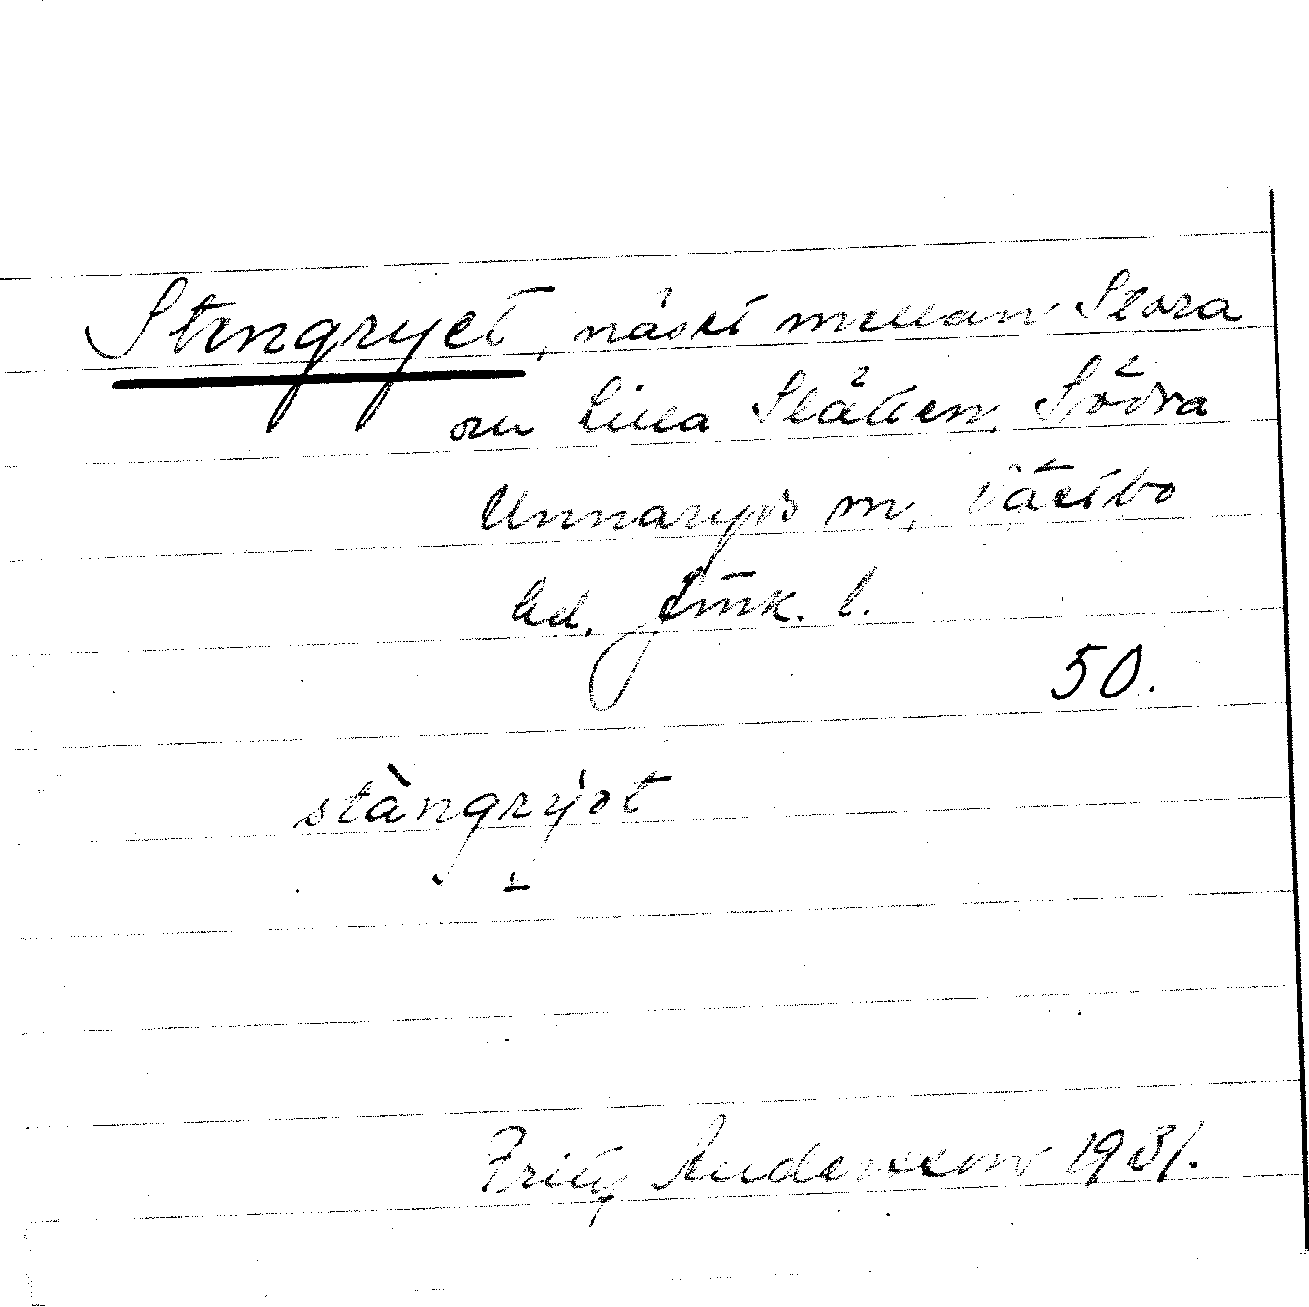 Stengryet, näset mellan Stora
och Lilla Slätten, Södra
Unnaryds sn, Västbo
hd, Jönk. l.
50.
stàngrýət
Fritz Andersson 1931.